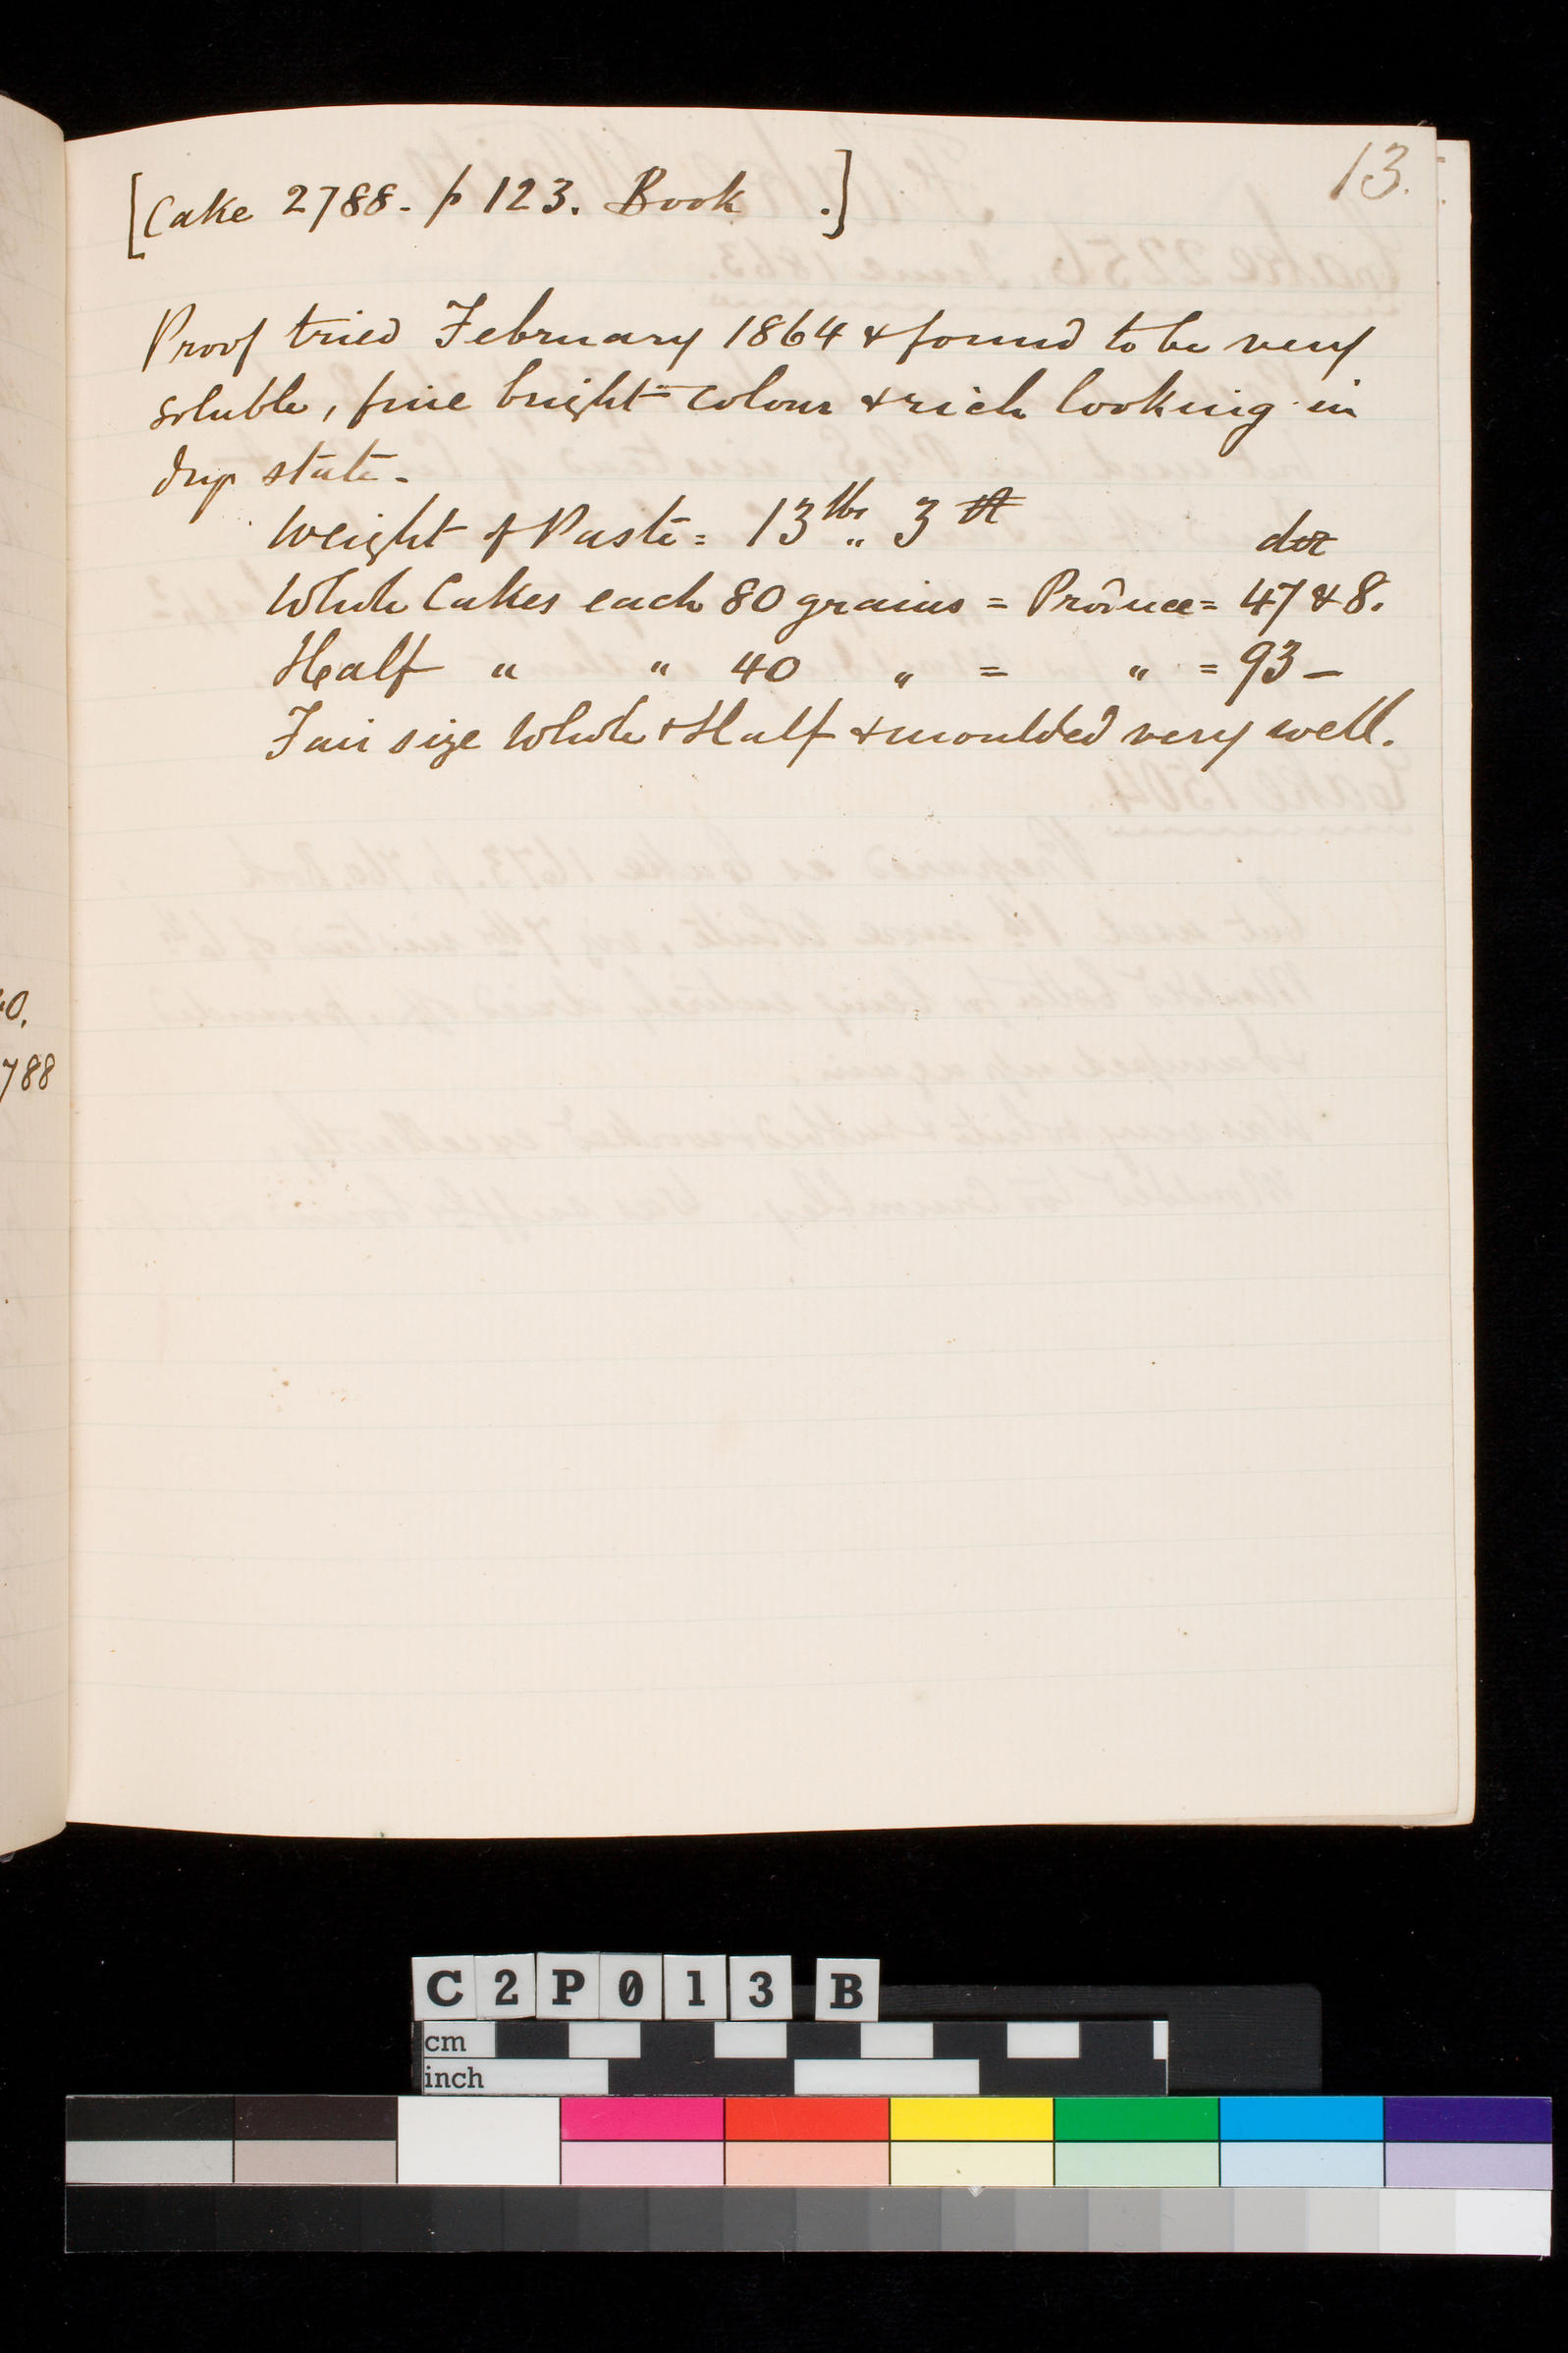 13.
[Cake 2788. p 123. Book .]
Proof tried February 1864 & found to be very
soluble, fine bright colour & rich looking in
drip state.
Weight of Paste = 13 lbs „ 3
doz
Whole Cakes each 80 grains = Produce = 47 & 8.
Half " " 40 " = " = 93 –
Fair size Whole & Half & moulded very well.
0.
788
C2P013 B
cm
inch